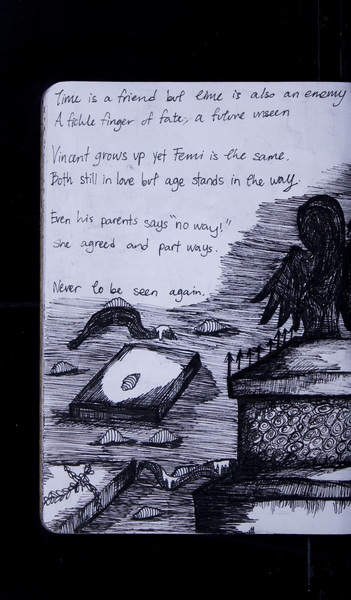 Time is a friend but time is also an enemy
A fickle finger of fate, a future unseen
Vincent grows up yet Femi is the same.
Both still in love but age stands in the way.
Even his parents says "no way!"
She agreed and part ways.
Never to be seen again.